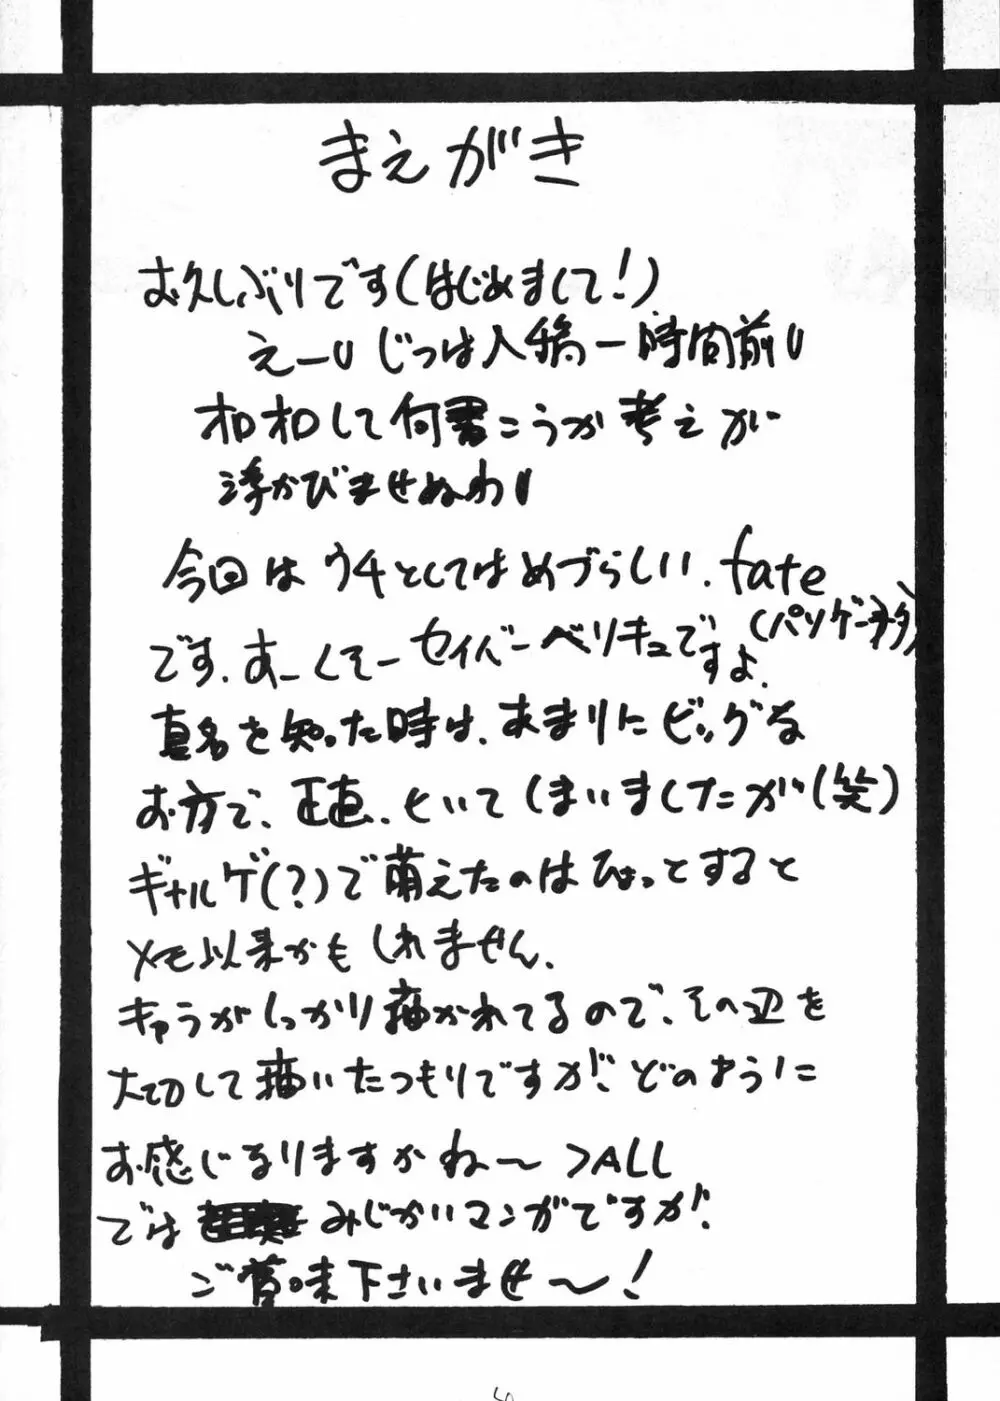 まえがき
お久しぶりです(はじめまして!)
えーじつは入稿一時間前
オロオロして何書こうか考えが
浮かびませぬわ
今回はウチとしてはめづらしい、fate
です。あーくそーセイバーベリキュですよ。
(パソゲー
真名を知った時は、あまりにビッグな
お方で、正直、といてしまいましたが(笑)
ギャルゲ(?)で萌えたのはひょっとすると
メモ以来かもしれません。
キャラがしっかり描かれてるので、その辺を
大切して描いたつもりですが、どのように
お感じなりますかね〜>ALL
では みじかいマンガですが、
ご賞味下さいませ〜!